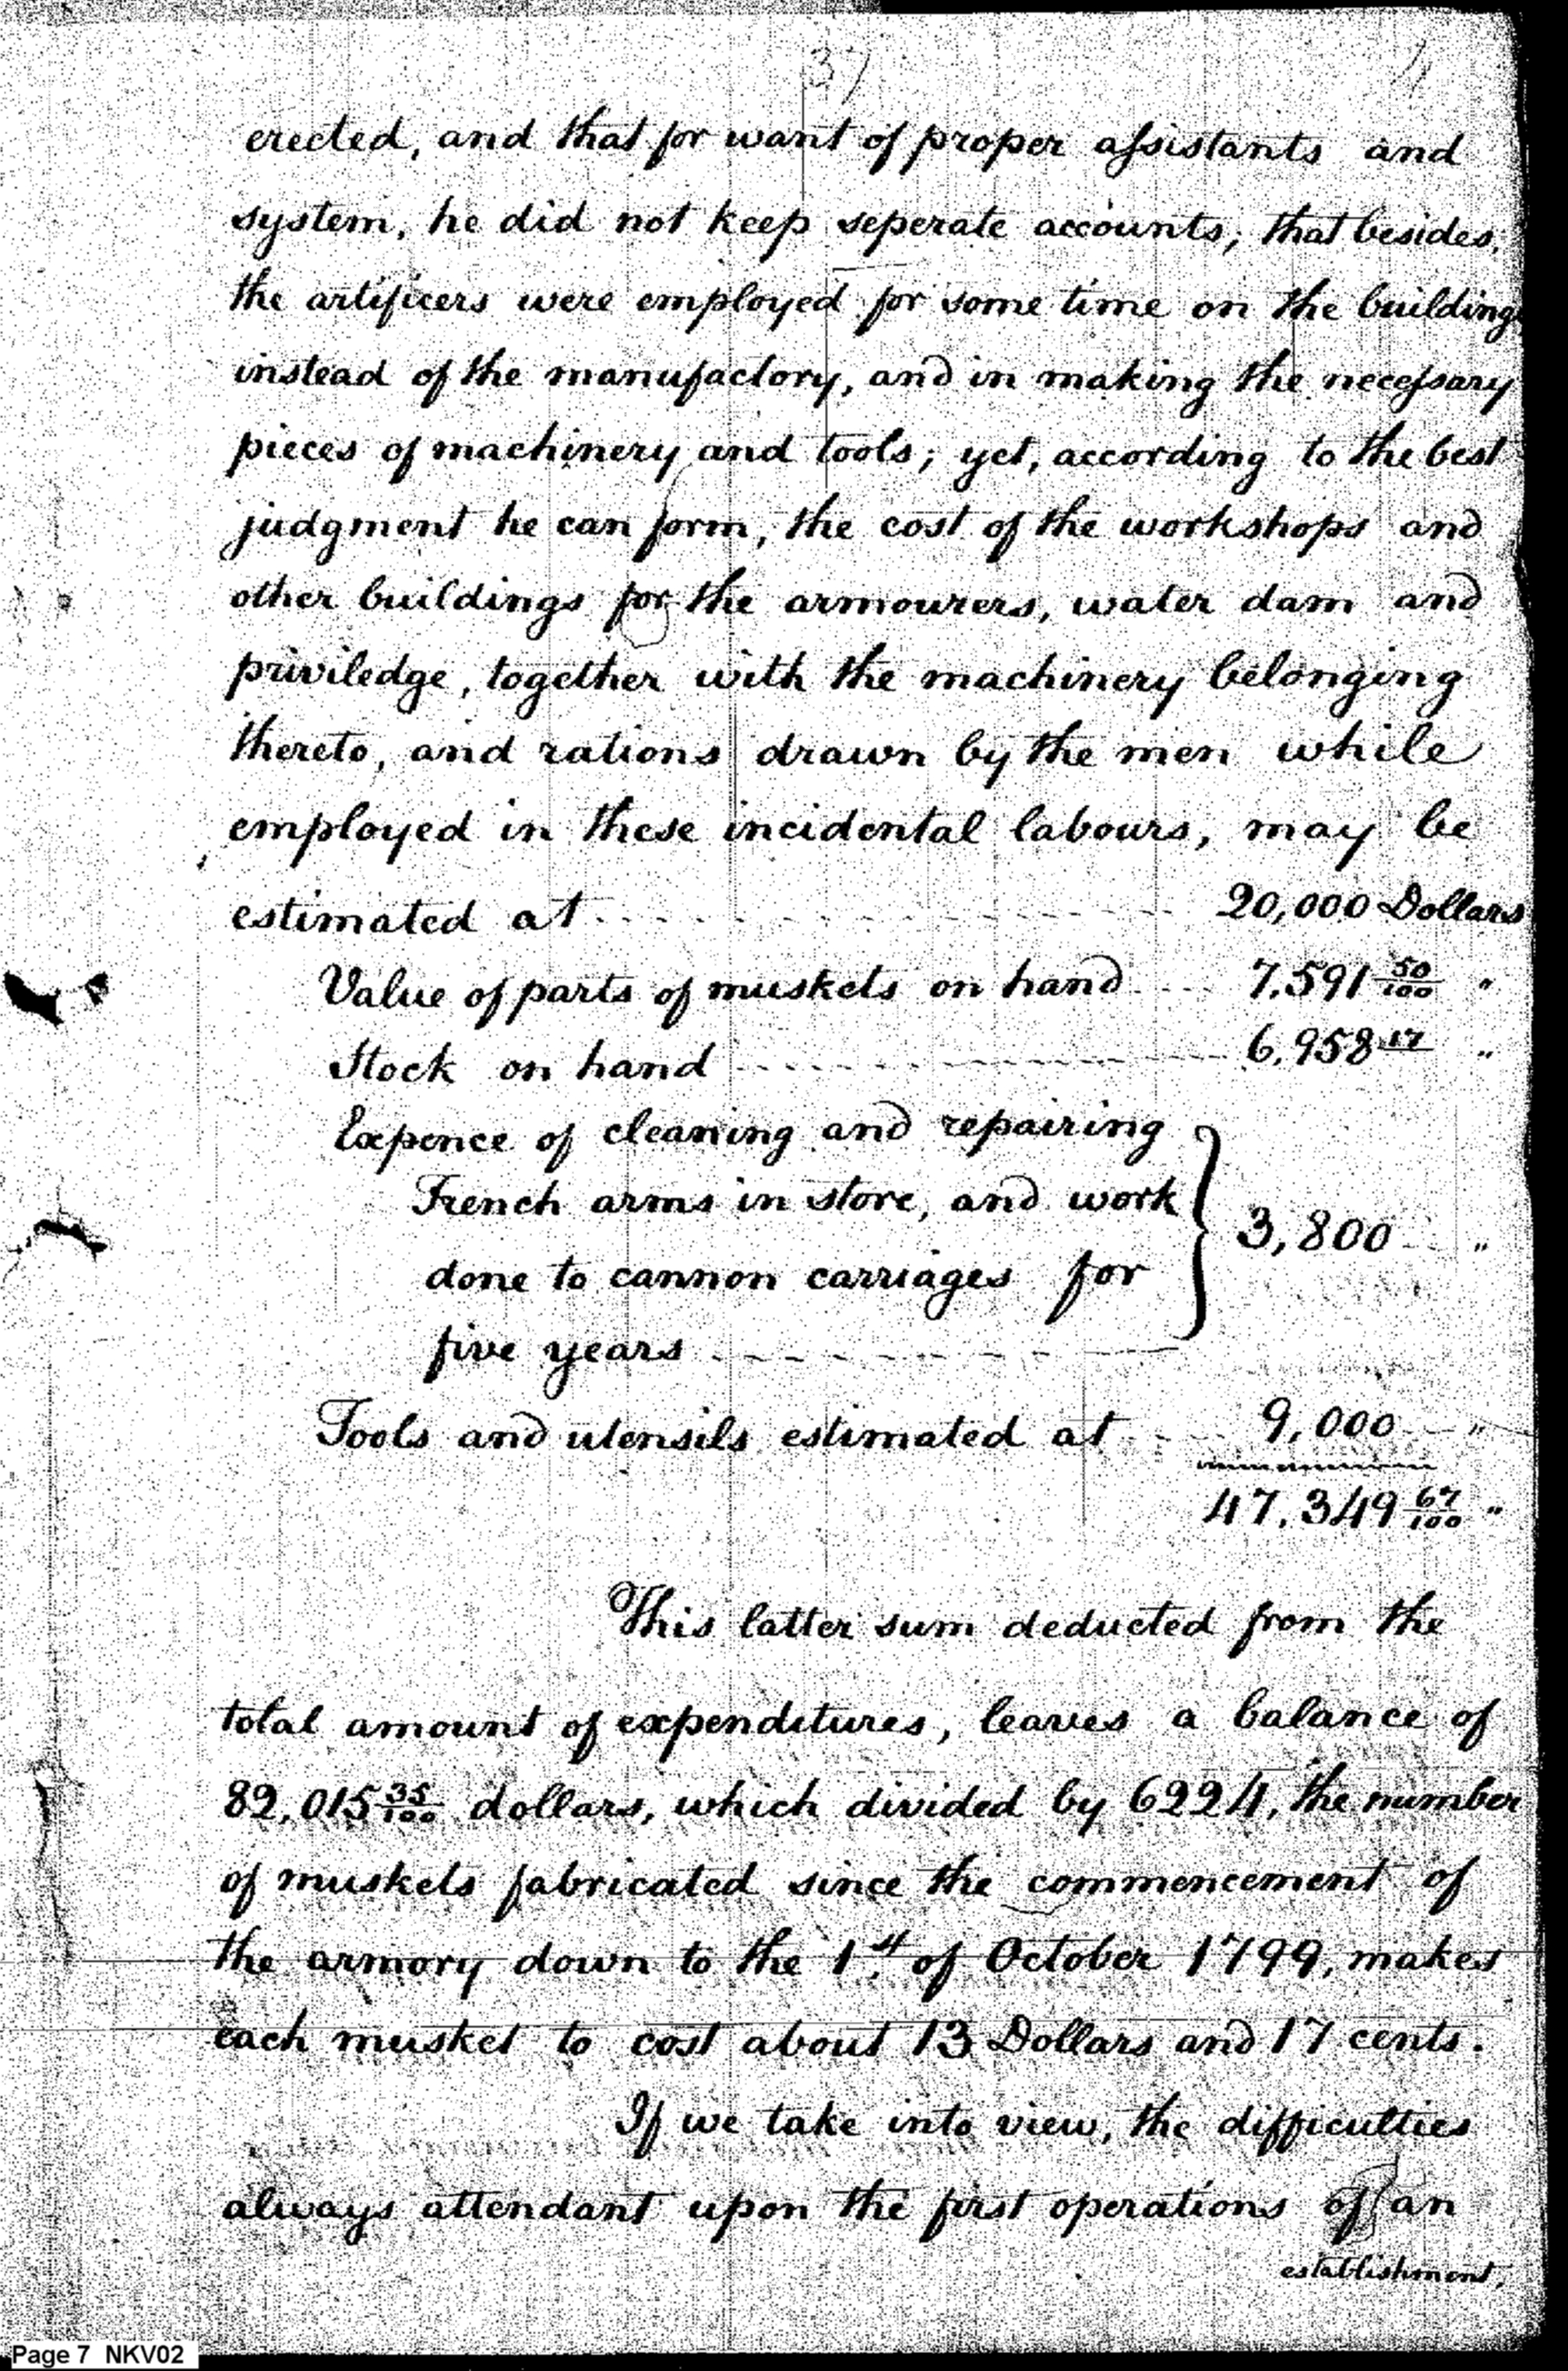 37
erected, and that for want of proper assistants and
system, he did not keep seperate accounts; that besides,
the artificers were employed for some time on the buildings
instead of the manufactory, and in making the necessary
pieces of machinery and tools; yet, according to the best
judgment he can form, the cost of the workshops and
other buildings for the armourers, water dam and
priviledge, together with the machinery belonging
thereto, and rations drawn by the men while
employed in these incidental labours, may be
estimated at 20,000 Dollars
Value of parts of muskets on hand 7,591 50/100 "
Stock on hand 6,958 17 "
Expence of cleaning and repairing
French arms in store, and work
done to cannon carriages for
five years } 3,800 "
Tools and utensils estimated at 9,000 "
47,349 67/100 "
This latter sum deducted from the
total amount of expenditures, leaves a balance of
82,015 35/100 dollars, which divided by 6224, the number
of muskets fabricated since the commencement of
the armory down to the 1.st of October 1799, makes
each musket to cost about 13 Dollars and 17 cents.
If we take into view, the difficulties
always attendant upon the first operations of an
establishment,
Page 7 NKV02